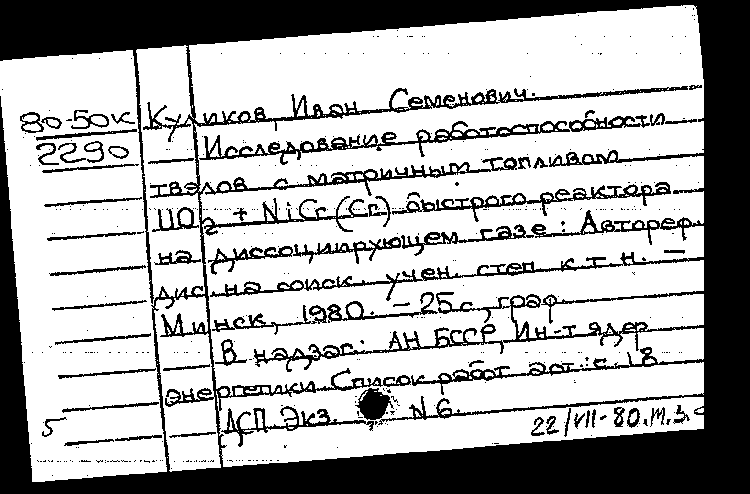 80-50к Куликов, Иван Семенович.
2290 Исследование работоспособности
твэлов с матричным топливом
UO2 + NiCr (Cr) быстрого реактора
на диссоциирующем газе : Автореф.
дис. на соиск. учен. степ к.т.н. —
Минск, 1980. – 25 с., граф.
В надзаг.: АН БССР, Ин-т ядер
энергетики. Список работ авт.: с. 18
5 ДСП. Экз. N 6.
22/VII-80.